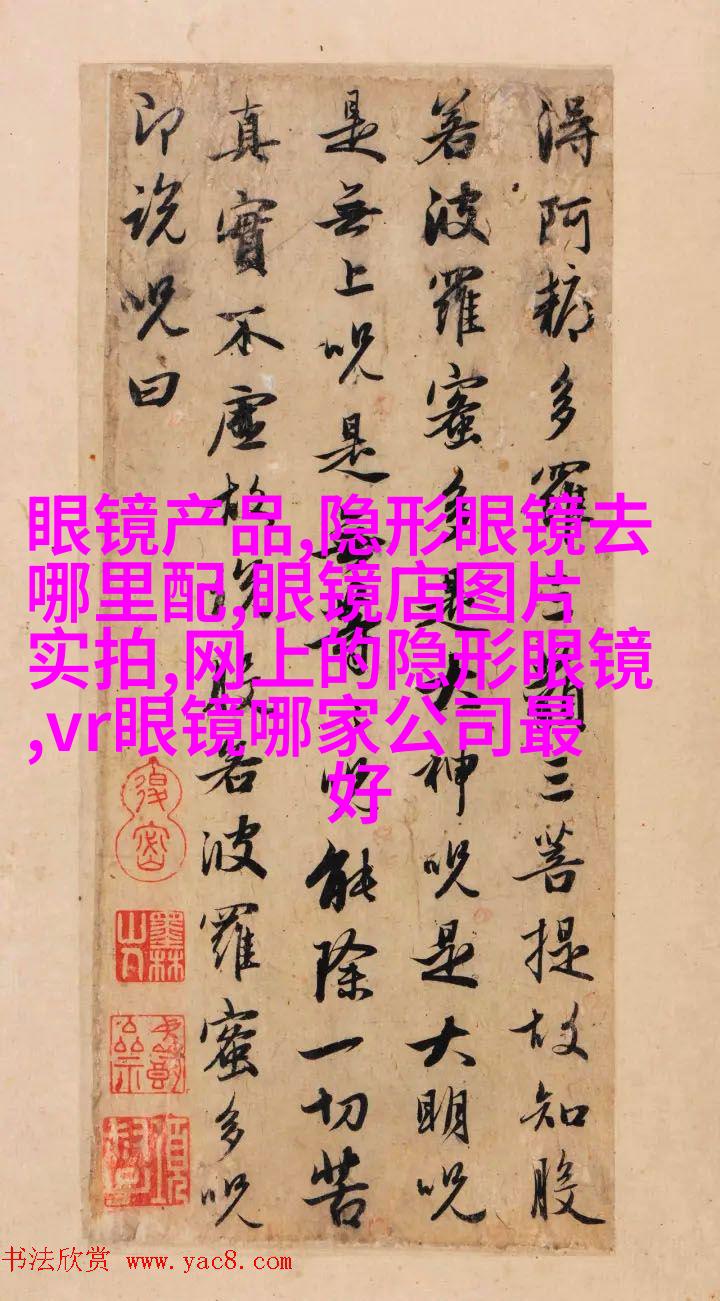 得阿耨多羅三藐三菩提故知般
若波羅蜜多是大神呪是大明呪
是無上呪是無等等呪能除一切苦
真實不虛故說般若波羅蜜多呪
即說呪曰
眼镜产品,隐形眼镜去
哪里配,眼镜店图片
实拍,网上的隐形眼镜
,vr眼镜哪家公司最
好
墨林山人
书法欣赏 www.yac8.com